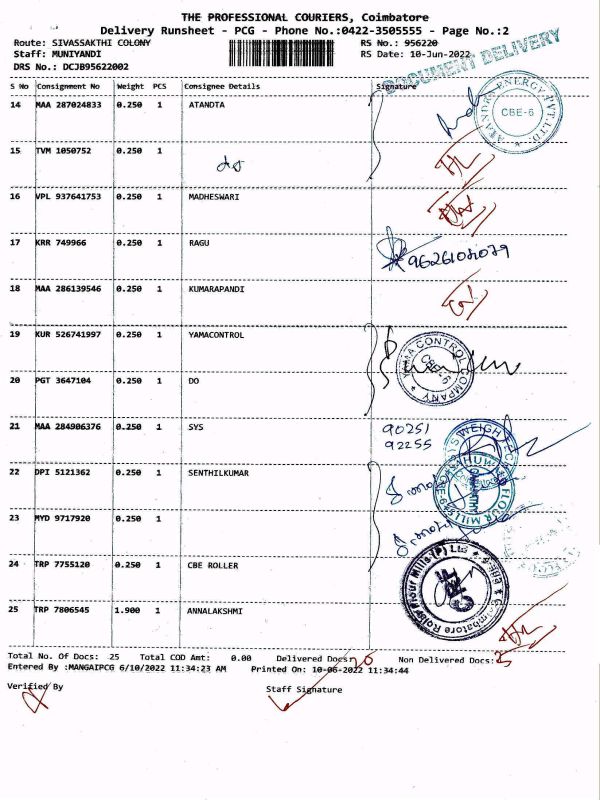 THE PROFESSIONAL COURIERS, Coimbatore
Delivery Runsheet - PCG - Phone No.:0422-3505555 - Page No.:2
Route: SIVASSAKTHI COLONY RS No.: 956220
Staff: MUNIYANDI RS Date: 10-Jun-2022
DRS No.: DCJB95622002
DOCUMENT DELIVERY
S No Consignment No Weight PCS Consignee Details Signature
14 MAA 287024833 0.250 1 ATANDTA
CBE-6
15 TVM 1050752 0.250 1
16 VPL 937641753 0.250 1 MADHESWARI
17 KRR 749966 0.250 1 RAGU
18 MAA 286139546 0.250 1 KUMARAPANDI
19 KUR 526741997 0.250 1 YAMACONTROL
YAMA CONTROL COMPANY
CBE-6
20 PGT 3647104 0.250 1 DO
21 MAA 284906376 0.250 1 SYS
90251
92255
22 DPI 5121362 0.250 1 SENTHILKUMAR
23 MYD 9717920 0.250 1
24 TRP 7755120 0.250 1 CBE ROLLER
25 TRP 7806545 1.900 1 ANNALAKSHMI
Total No. Of Docs: 25 Total COD Amt: 0.00 Delivered Docs: 20 Non Delivered Docs: 5
Entered By :MANGAIPCG 6/10/2022 11:34:23 AM Printed On: 10-06-2022 11:34:44
Verified By Staff Signature